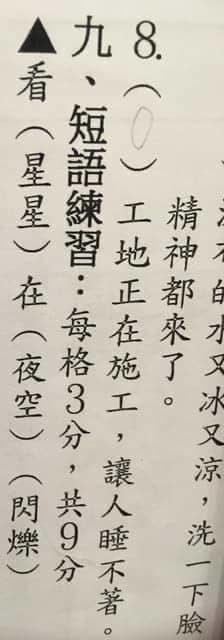 水又冰又涼，洗一下臉
精神都來了。
8.（○）工地正在施工，讓人睡不著。
九、短語練習：每格3分，共9分
▲看（星星）在（夜空）（閃爍）